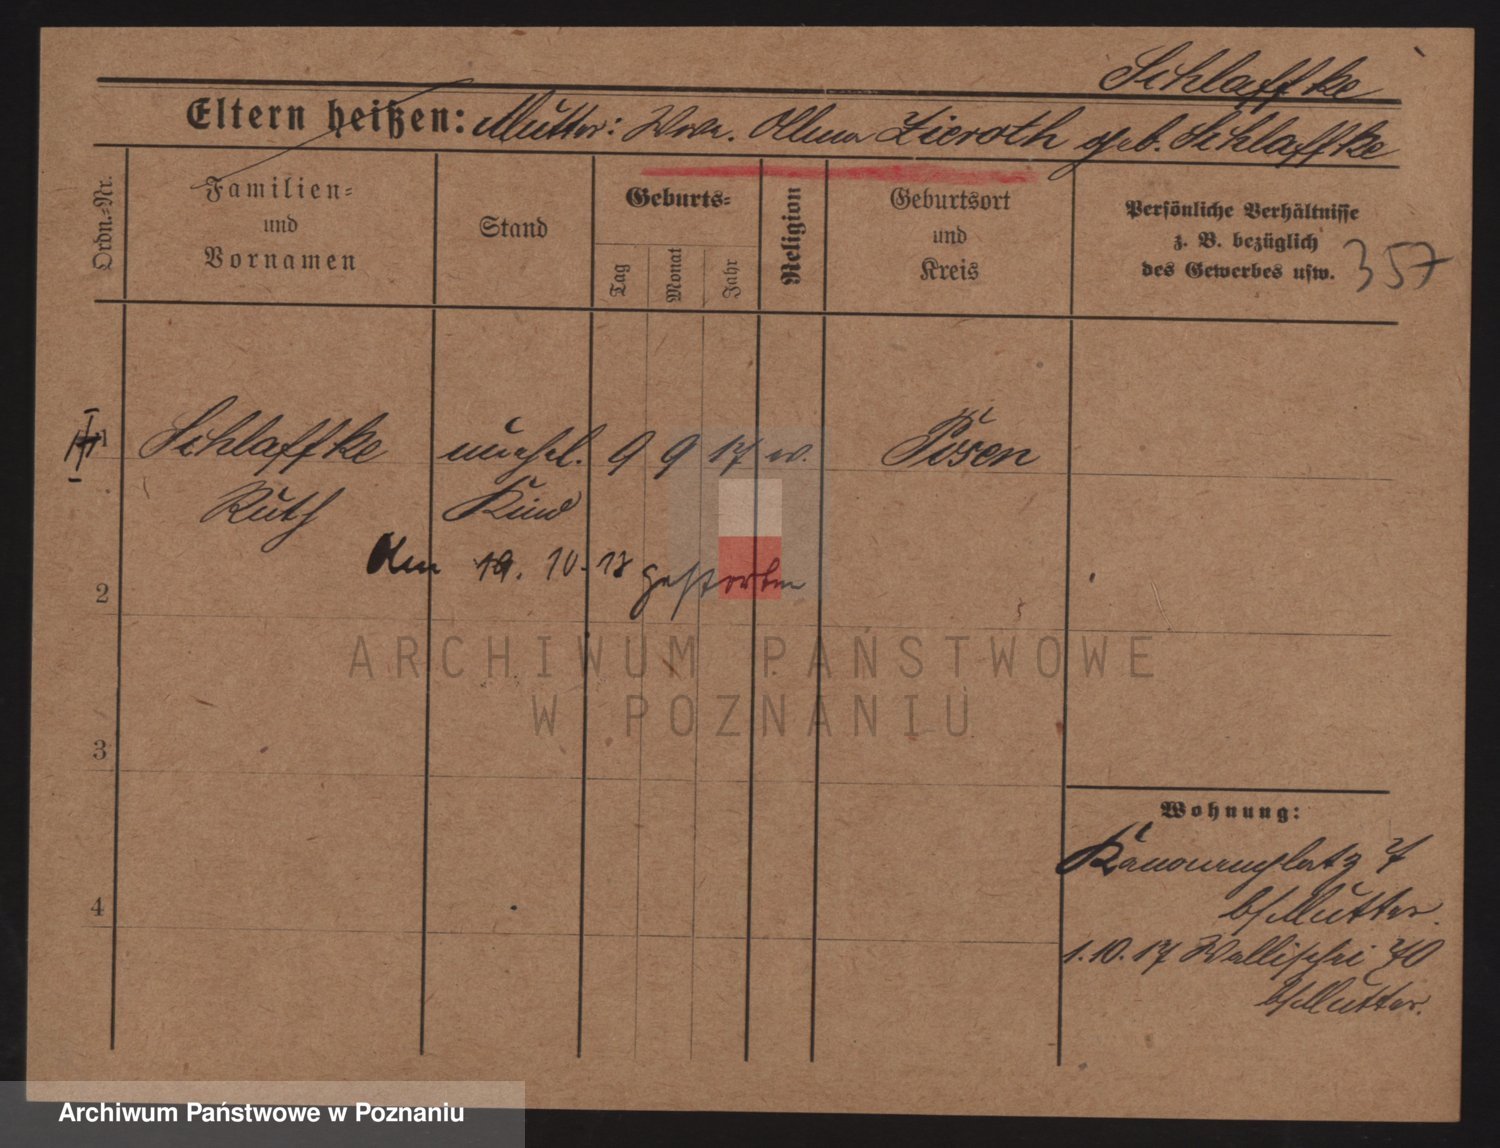 Schlaffke
Eltern heißen: Mutter: Wwe. Alma Zieroth geb. Schlaffke
Ordn.=Nr.
Familien=
und
Vornamen
Stand
Geburts=
Tag
Monat
Jahr
Religion
Geburtsort
und
Kreis
Persönliche Verhältnisse
z. B. bezüglich
des Gewerbes usw.
357
1 Schlaffke unehel. 9 9 17 ev. Posen
Ruth Kind
Am 19. 10. 17 gestorben
2
3
4
Wohnung:
Kanonenplatz 7
b/Mutter.
1.10.17 Wallischei 70
b/Mutter.
ARCHIWUM PAŃSTWOWE
W POZNANIU
Archiwum Państwowe w Poznaniu